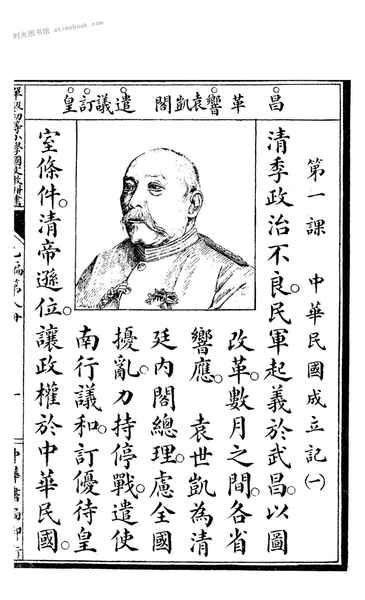 时光图书馆 atimebook.com
昌 革 響袁凱閣 遣議訂皇
第一課 中華民國成立記㈠
清季政治不良。民軍起義於武昌。以圖
改革。數月之間。各省
響應。 袁世凱為清
廷內閣總理。慮全國
擾亂。力持停戰。遣使
南行議和。訂優待皇
室條件。清帝遜位。讓政權於中華民國。
一
中華書局印行